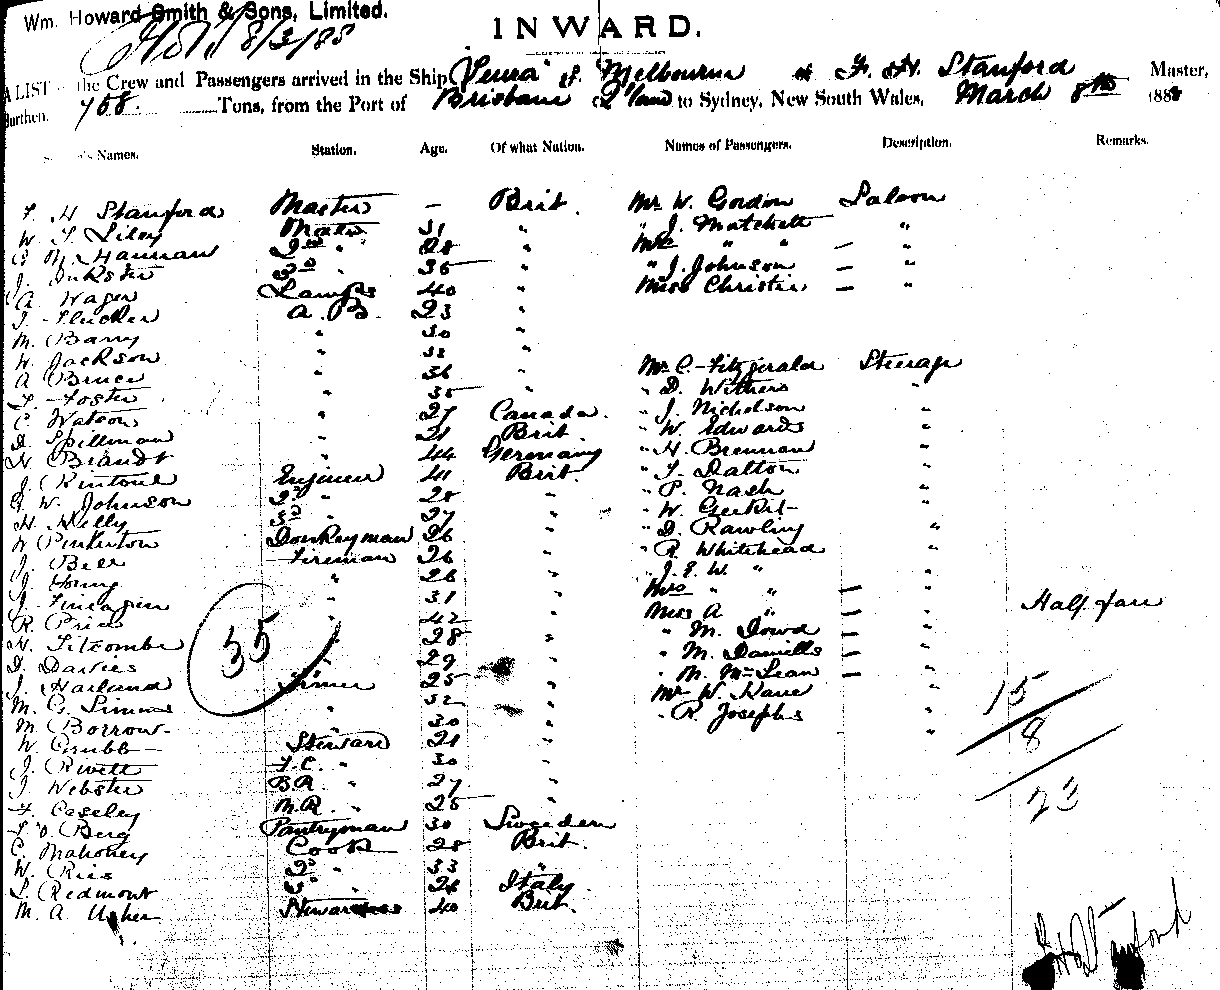 Wm. Howard Smith & Sons, Limited.
8/3/88
INWARD.
A LIST the Crew and Passengers arrived in the Ship of Melbourne of F. H. Stanford Master,
Burthen, 788 Tons, from the Port of Brisbane Q'land to Sydney, New South Wales, March 8th 188
's Names. Station. Age. Of what Nation. Names of Passengers. Description. Remarks.
F. H Stanford Master – Brit. Mr W. Gordon Saloon
W Liley Mate 51 " " J. Matchett "
M. Hannan 2nd " 28 " Mrs " " – "
J. Inkster 3d " 35 " " J. Johnson – "
A. Wager Lamps 40 " Miss Christie – "
J. Flucker A. B. 23 "
M. Barry " 30 "
W. Jackson " "
A Bruce " 36 " Mr C. Fitzgerald Steerage
F. Foster " 35 " " D. Withers "
C. Watson " 27 Canada. " J. Nicholson "
D. Spillman " 21 Brit. " W. Edwards "
H Brandt " 44 Germany " H. Brennan "
J. Rintoul Engineer 41 Brit. " F. Dalton "
G. W. Johnson 2d " 28 " " P. Nash "
H. Welly 3d " 27 " " W.
W Pinkerton Donkeyman 26 " " D. Rawling "
J. Bell Fireman 26 " " R. Whitehead "
J. Young " 26 " " J. E. W. " "
J. Finnagin " 31 " Mrs " " – "
R. Price " 42 " Miss A " – " Half fare
H. Titcombe " 28 " " M. Dowd – "
D. Davies " 29 " M. Daniells – "
J. Harland Trimer 25 " " M. McLean – "
M. G. Simms " 32 Mr W. Kane " 15
M. Borrow " 30 " " R. Josephs "
W. Grubb Steward 21 " 8
J. Rivett F.C. " 30 "
J. Webster B.R. " 27 " 23
F. Caseley M.R. " 25 "
Berg Pantryman 30 Sweeden
C. Mahoney Cook 28 Brit.
W. Ries 2d " 33 "
L. Redmont 3d " 26 Italy
M. A. Usher Stewardess 40 Brit.
35
F H Stanford